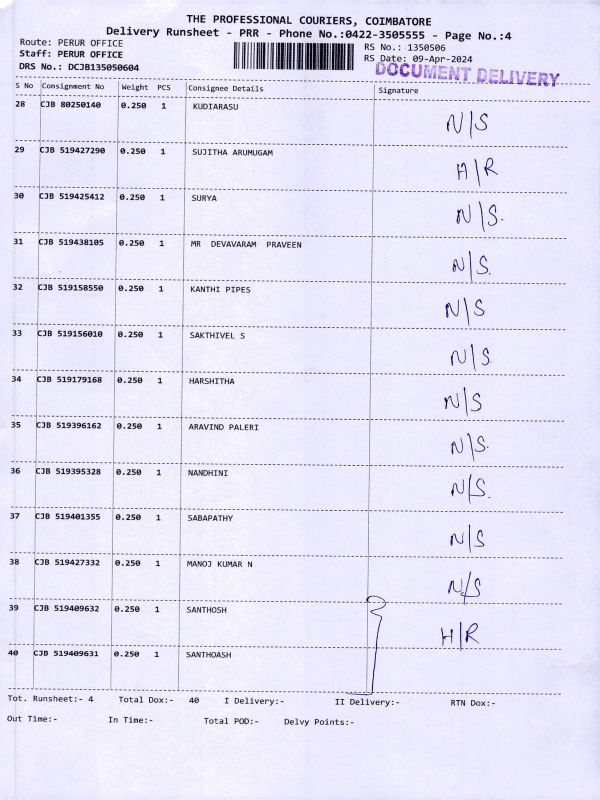 THE PROFESSIONAL COURIERS, COIMBATORE
Delivery Runsheet - PRR - Phone No.:0422-3505555 - Page No.:4
Route: PERUR OFFICE
RS No.: 1350506
Staff: PERUR OFFICE
RS Date: 09-Apr-2024
DRS No.: DCJB135050604
DOCUMENT DELIVERY
S No Consignment No Weight PCS Consignee Details Signature
28 CJB 80250140 0.250 1 KUDIARASU N/S
29 CJB 519427290 0.250 1 SUJITHA ARUMUGAM H/R
30 CJB 519425412 0.250 1 SURYA N/S.
31 CJB 519438105 0.250 1 MR DEVAVARAM PRAVEEN N/S.
32 CJB 519158550 0.250 1 KANTHI PIPES N/S
33 CJB 519156010 0.250 1 SAKTHIVEL S N/S.
34 CJB 519179168 0.250 1 HARSHITHA N/S
35 CJB 519396162 0.250 1 ARAVIND PALERI N/S.
36 CJB 519395328 0.250 1 NANDHINI N/S.
37 CJB 519401355 0.250 1 SABAPATHY N/S
38 CJB 519427332 0.250 1 MANOJ KUMAR N N/S
39 CJB 519409632 0.250 1 SANTHOSH H/R
40 CJB 519409631 0.250 1 SANTHOASH
Tot. Runsheet:- 4 Total Dox:- 40 I Delivery:- II Delivery:- RTN Dox:-
Out Time:- In Time:- Total POD:- Delvy Points:-